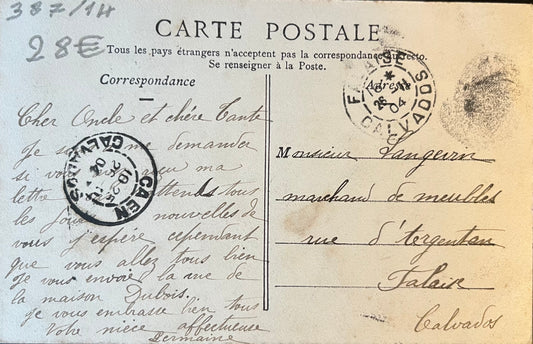 387/14
28€
CARTE POSTALE
Tous les pays étrangers n'acceptent pas la correspondance au recto.
Se renseigner à la Poste.
Correspondance
Adresse
FALAISE
26 04
CALVADOS
Cher Oncle et chère Tante
Je me demander
si vous reçu ma
lettre attends tous
les jours nouvelles de
vous j'espère cependant
que vous allez tous bien
Je vous envoie la vue de
la maison Dubois.
Je vous embrasse bien tous
Votre nièce affectueuse
Germaine
CAEN
CALVADOS
Monsieur Langevin
marchand de meubles
rue d'Argentan
Falaise
Calvados